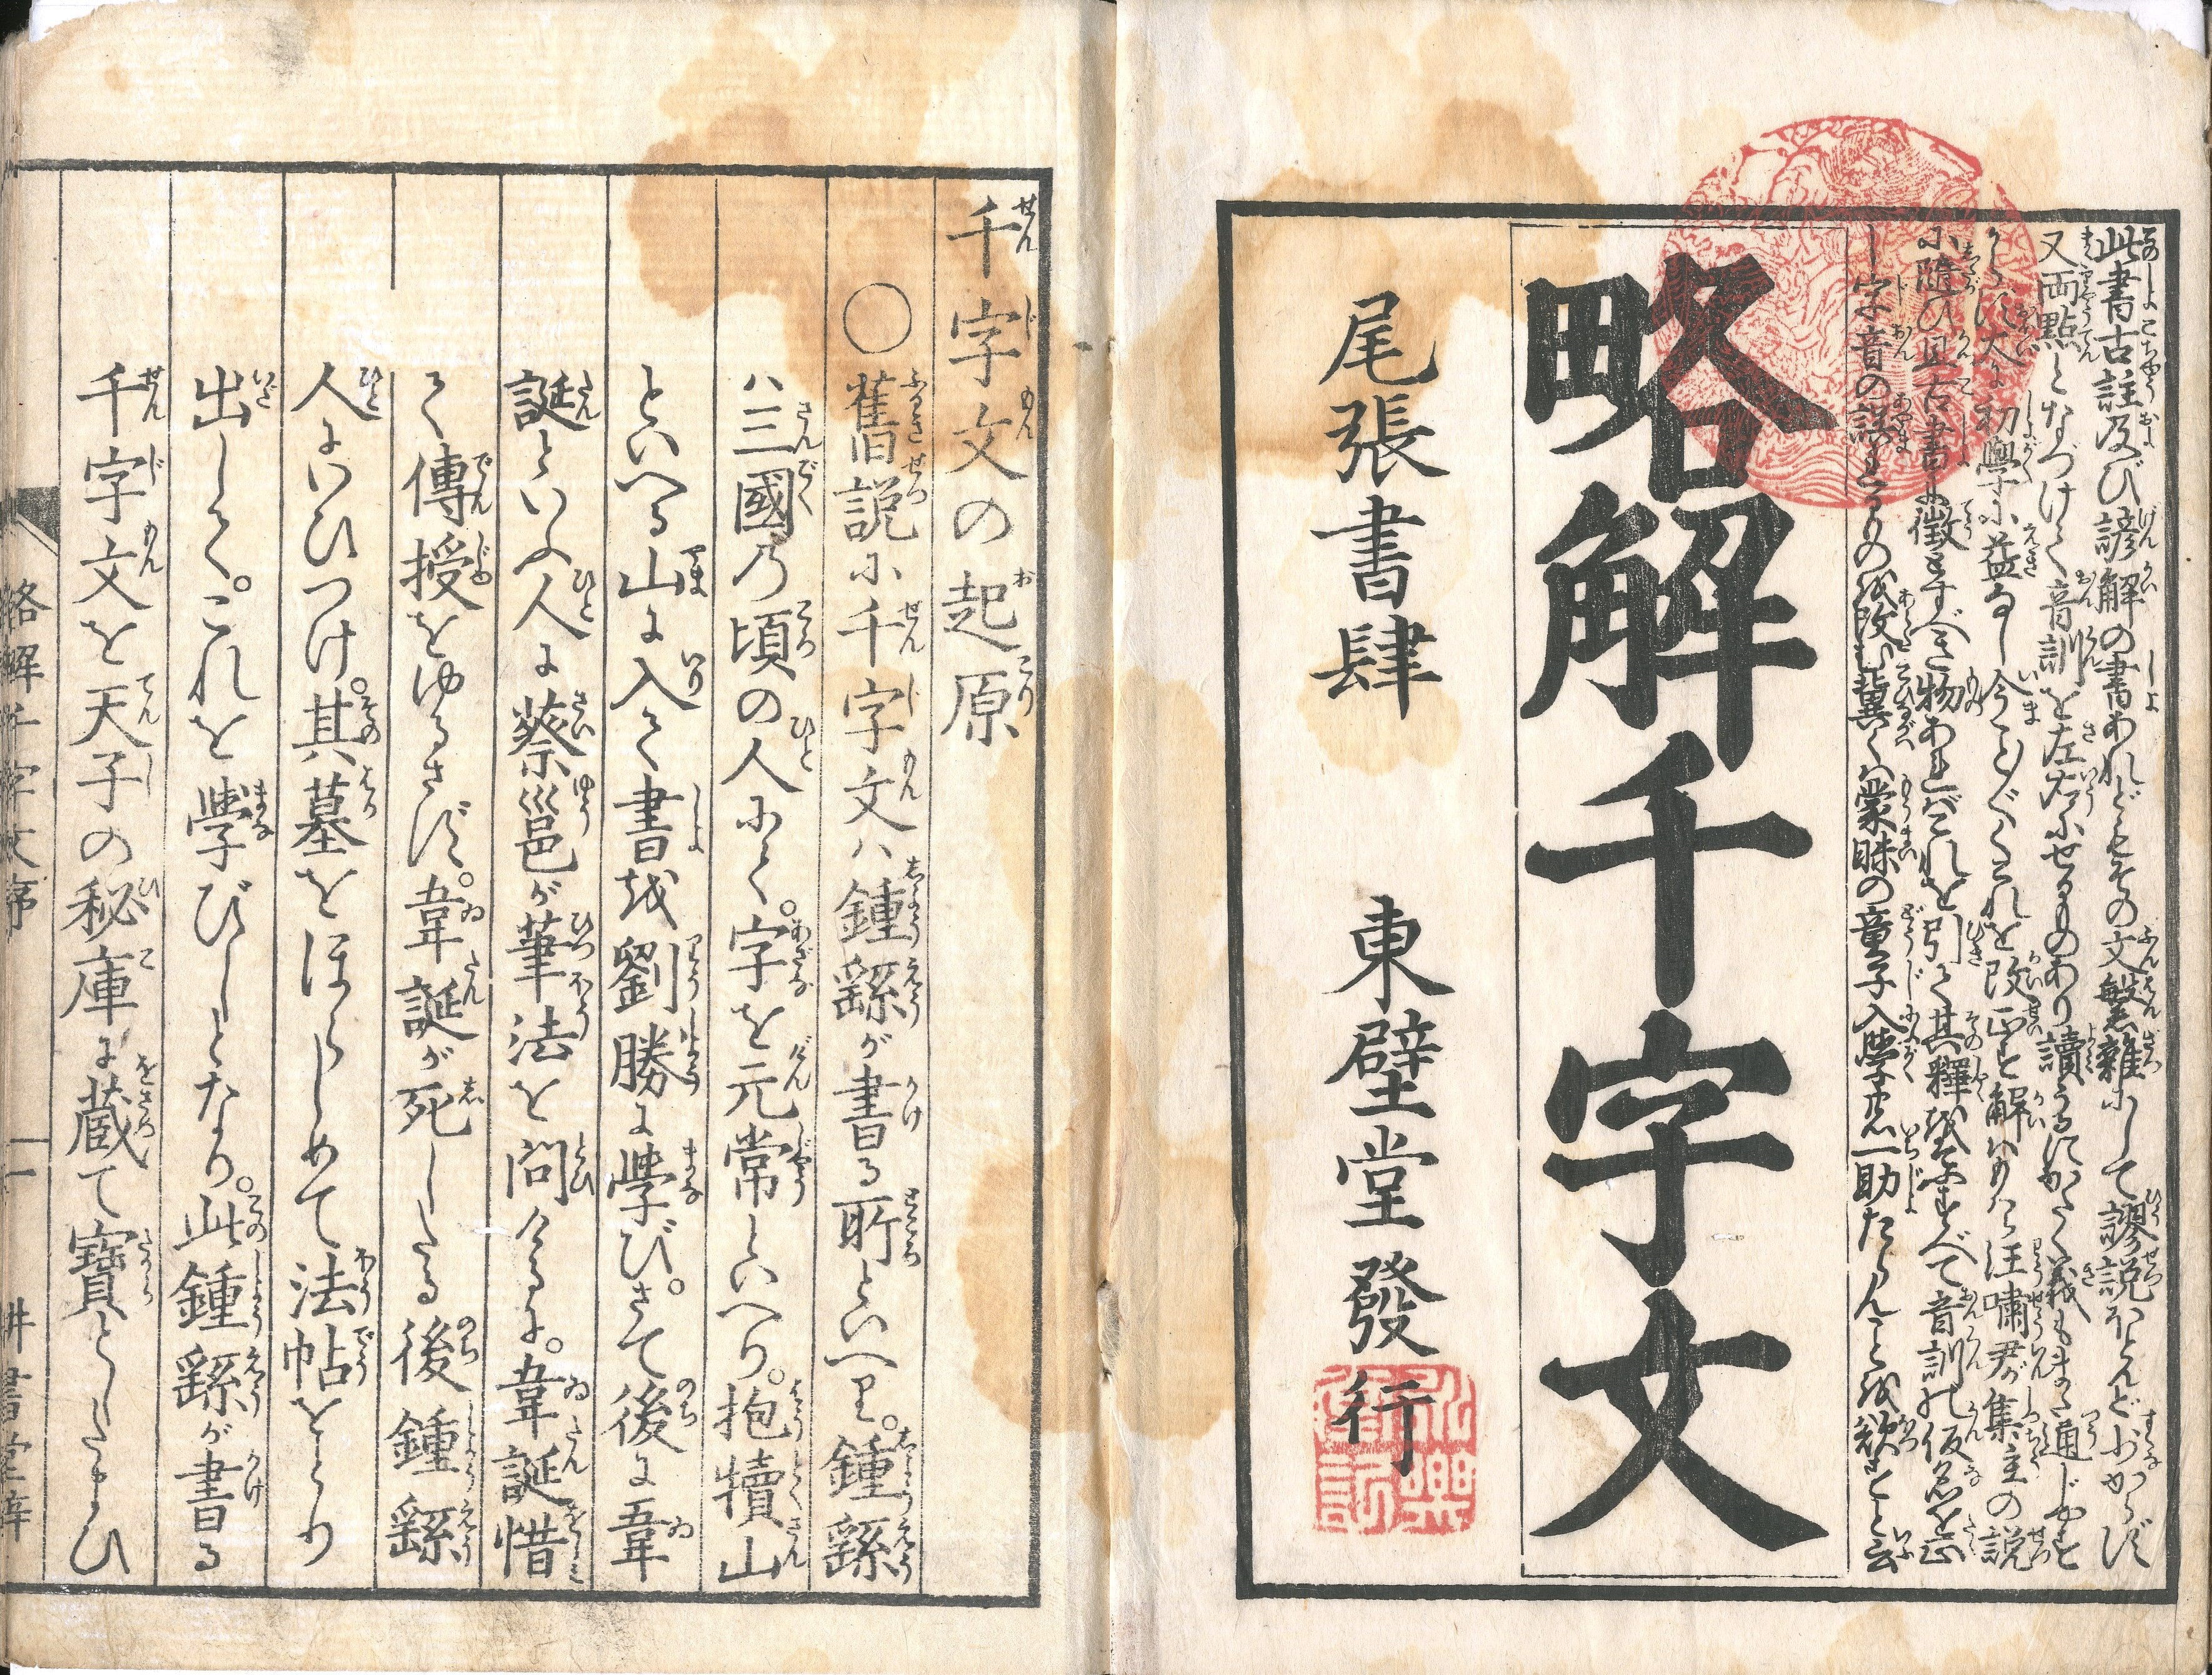 此書古註及び諺解の書あれどもその文繁雑にして謬説ほとんど少からず
又両點となづけて音訓を左右にせるものあり讀うるにかたく義もまた通じやす
からず大に初學に益なし今こと〴〵くこれを改正す解はもはら汪嘯尹が集註の説
に隨ひ且古書に徴とすべき物あればこれを引て其釋を挙すべて音訓の仮名を正
し字音の誤まるものを改む冀くハ蒙昧の童子入學の一助たらんことを欲すと云
略解千字文
尾張書肆 東壁堂發行
千字文の起原
〇舊説に千字文ハ鍾繇が書る所といへり。鍾繇
ハ三國乃頃の人にて。字を元常といへり。抱犢山
といへる山に入て書を劉勝に學び。さて後に韋
誕といふ人に蔡邕が筆法を問けるに。韋誕惜
て傳授をゆるさず。韋誕が死したる後鍾繇
人にいひつけ。其墓をほらしめて法帖をとり
出して。これを學びしとなり。此鍾繇が書る
千字文を天子の秘庫に蔵て寶としたまひ
略解千字文序 一